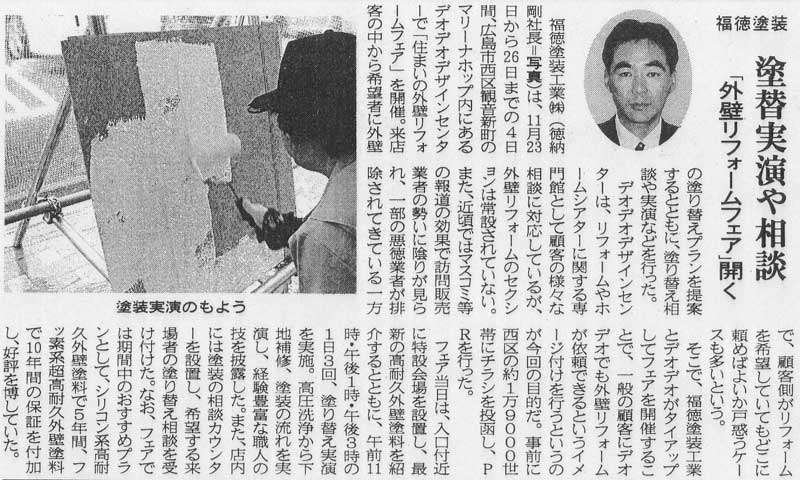 福徳塗装
塗替実演や相談
「外壁リフォームフェア」開く
福徳塗装工業㈱（徳納
剛社長＝写真）は、11月23
日から26日までの４日
間、広島市西区観音新町の
マリーナホップ内にある
デオデオデザインセンタ
ーで「住まいの外壁リフォ
ームフェア」を開催。来店
客の中から希望者に外壁
の塗り替えプランを提案
するとともに、塗り替え相
談や実演などを行った。
デオデオデザインセン
ターは、リフォームやホ
ームシアターに関する専
門館として顧客の様々な
相談に対応しているが、
外壁リフォームのセクシ
ョンは常設されていない。
また、近頃ではマスコミ等
の報道の効果で訪問販売
業者の勢いに陰りが見ら
れ、一部の悪徳業者が排
除されてきている一方
で、顧客側がリフォーム
を希望していてもどこに
頼めばよいか戸惑うケー
スも多いという。
そこで、福徳塗装工業
とデオデオがタイアップ
してフェアを開催するこ
とで、一般の顧客にデオ
デオでも外壁リフォーム
が依頼できるというイメ
ージ付けを行うというの
が今回の目的だ。事前に
西区の約１万9000世
帯にチラシを投函し、Ｐ
Ｒを行った。
フェア当日は、入口付近
に特設会場を設置し、最
新の高耐久外壁塗料を紹
介するとともに、午前11
時・午後１時・午後３時の
１日３回、塗り替え実演
を実施。高圧洗浄から下
地補修、塗装の流れを実
演し、経験豊富な職人の
技を披露した。また、店内
には塗装の相談カウンタ
ーを設置し、希望する来
場者の塗り替え相談を受
け付けた。なお、フェアで
は期間中のおすすめプラ
ンとして、シリコン系高耐
久外壁塗料で５年間、フ
ッ素系超高耐久外壁塗料
で10年間の保証を付加
し、好評を博していた。
塗装実演のもよう